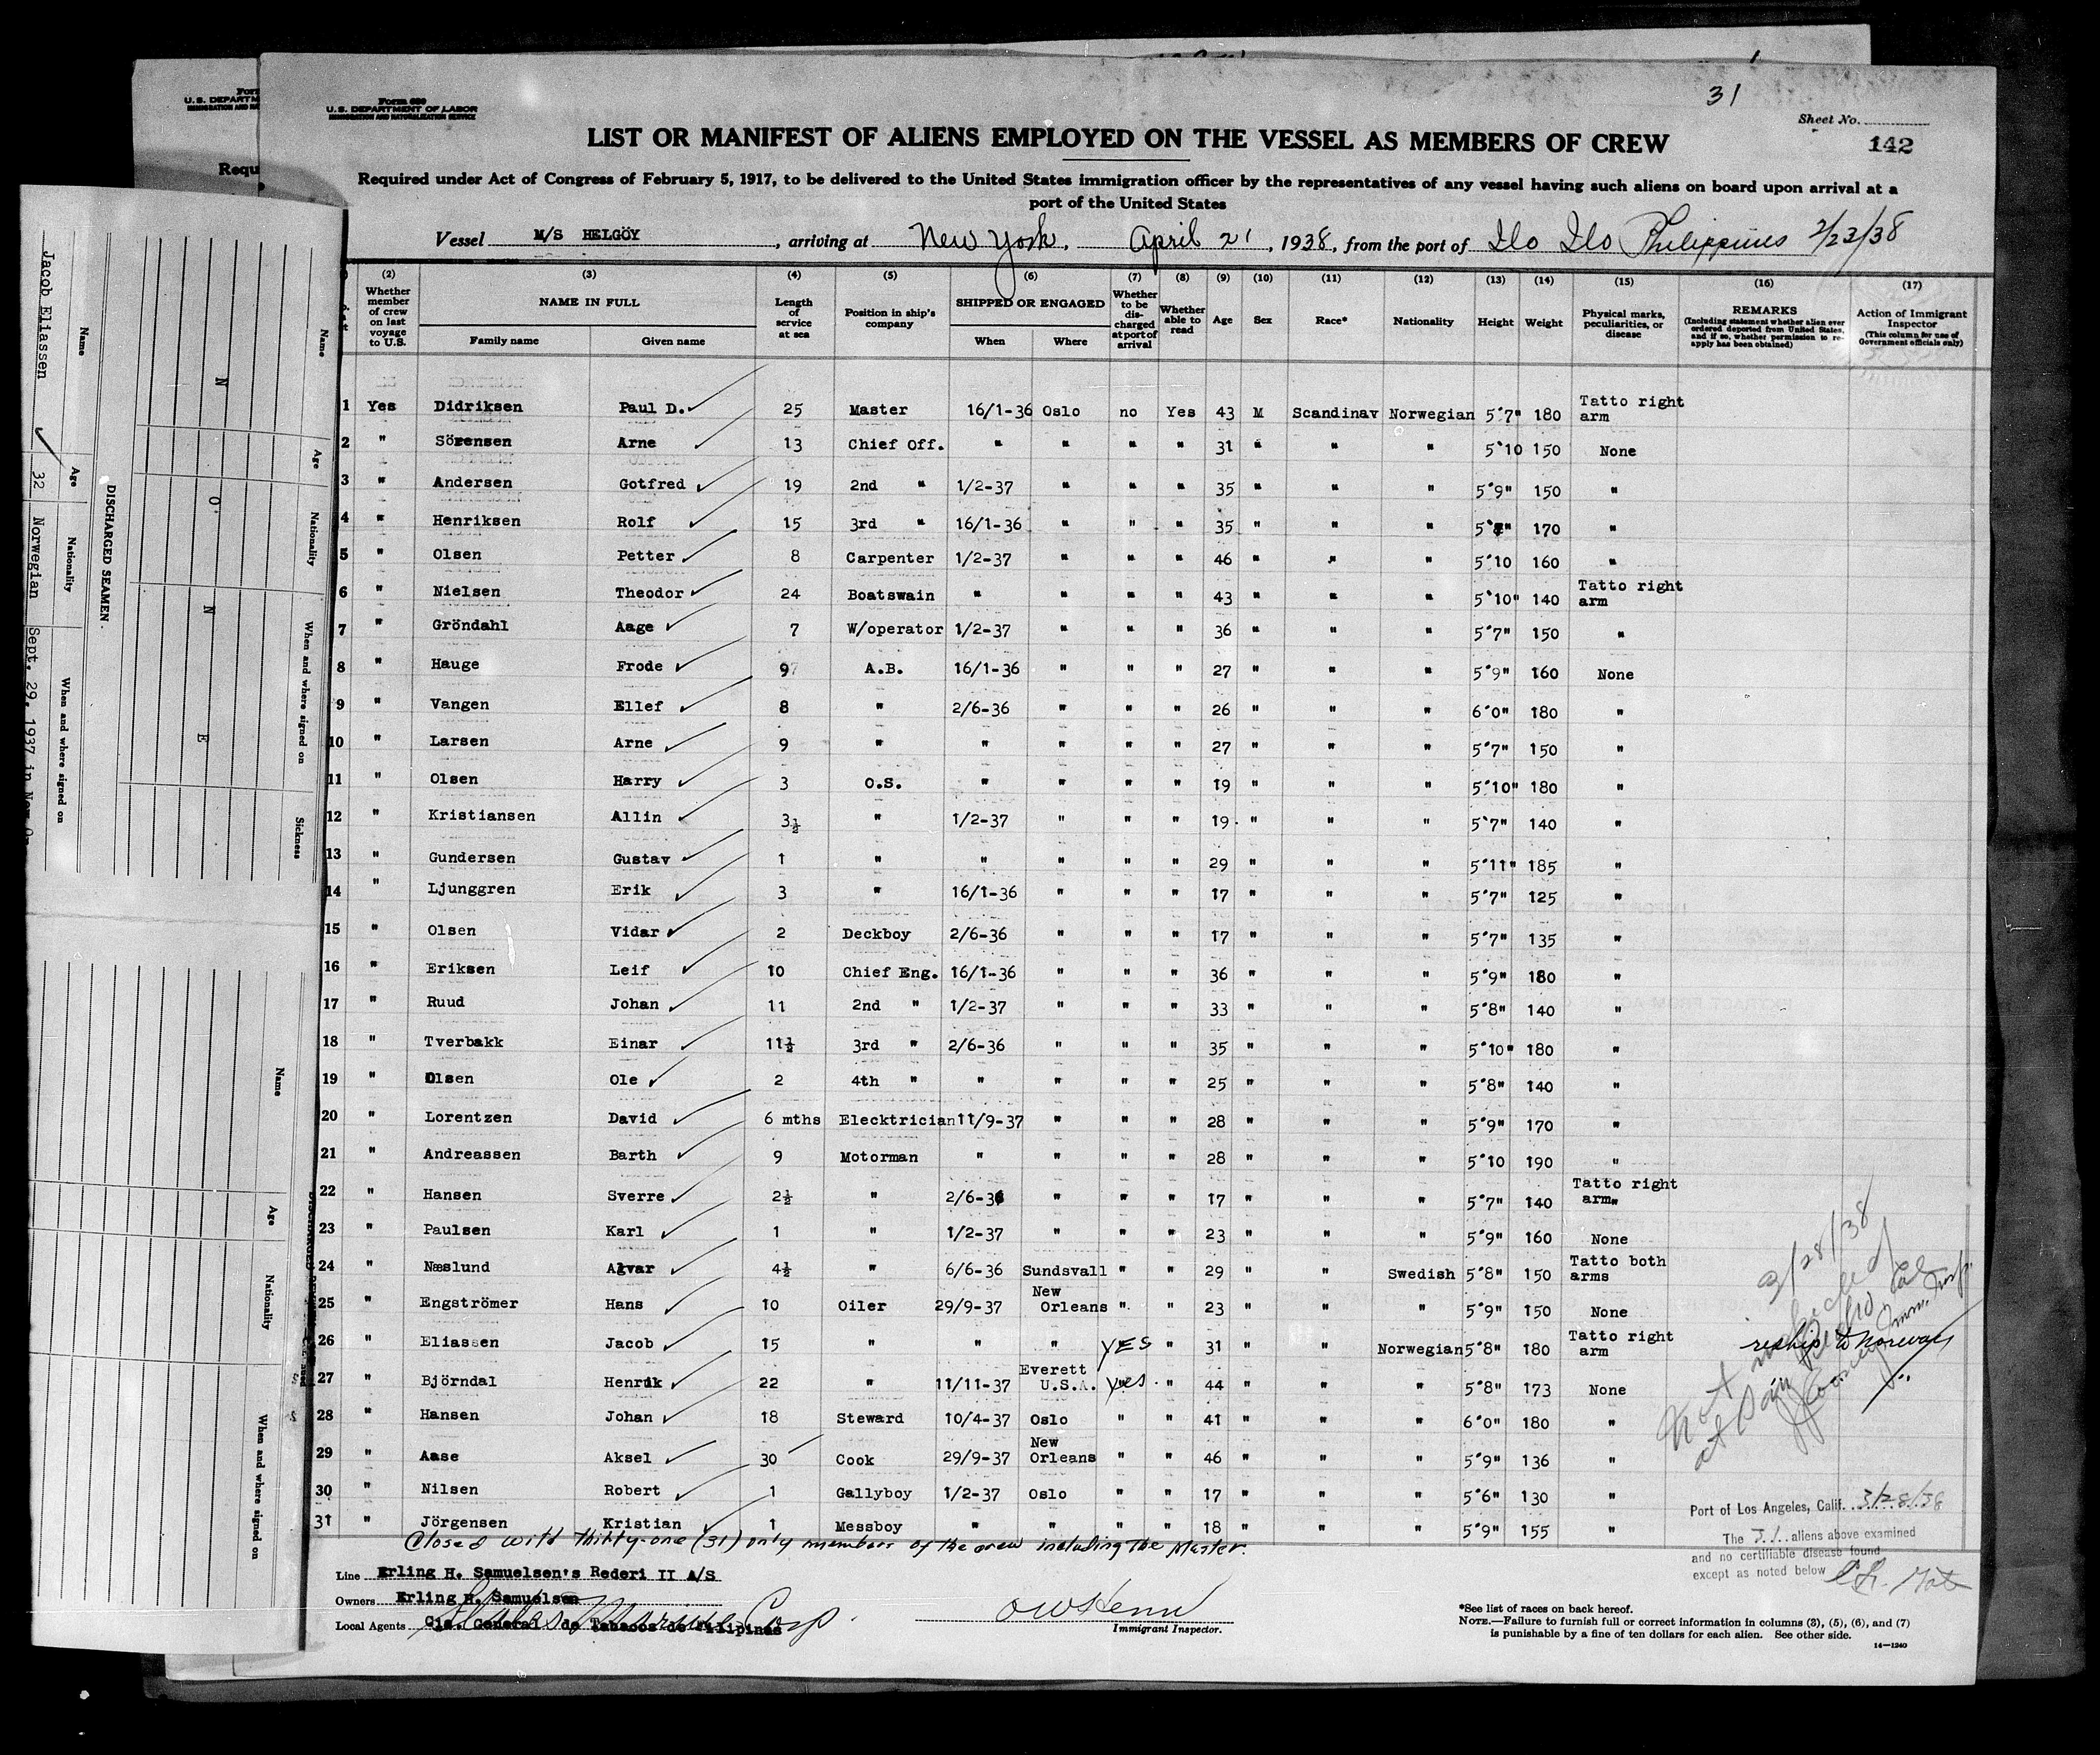 31
Form 680
U.S. DEPARTMENT OF LABOR
IMMIGRATION AND NATURALIZATION SERVICE
Sheet No.
142
LIST OR MANIFEST OF ALIENS EMPLOYED ON THE VESSEL AS MEMBERS OF CREW
Required under Act of Congress of February 5, 1917, to be delivered to the United States immigration officer by the representatives of any vessel having such aliens on board upon arrival at a
port of the United States
Vessel M/S HELGÖY, arriving at New York, April 21, 1938, from the port of Ilo Ilo Philippines 2/23/38
(2) Whether member of crew on last voyage to U.S.
(3) NAME IN FULL Family name Given name
(4) Length of service at sea
(5) Position in ship's company
(6) SHIPPED OR ENGAGED When Where
(7) Whether to be discharged at port of arrival
(8) Whether able to read
(9) Age
(10) Sex
(11) Race*
(12) Nationality
(13) Height
(14) Weight
(15) Physical marks, peculiarities, or disease
(16) REMARKS (Including statement whether alien ever ordered deported from United States, and if so, whether permission to reapply has been obtained)
(17) Action of Immigrant Inspector (This column for use of Government officials only)
1 Yes Didriksen Paul D. 25 Master 16/1-36 Oslo no Yes 43 M Scandinav Norwegian 5'7" 180 Tatto right arm
2 " Sörensen Arne 13 Chief Off. " " " " 31 " " " 5'10 150 None
3 " Andersen Gotfred 19 2nd " 1/2-37 " " " 35 " " " 5'9" 150 "
4 " Henriksen Rolf 15 3rd " 16/1-36 " " " 35 " " " 170 "
5 " Olsen Petter 8 Carpenter 1/2-37 " " " 46 " " " 5'10 160 "
6 " Nielsen Theodor 24 Boatswain " " " " 43 " " " 5'10" 140 Tatto right arm
7 " Gröndahl Aage 7 W/operator 1/2-37 " " " 36 " " " 5'7" 150 "
8 " Hauge Frode 9 A.B. 16/1-36 " " " 27 " " " 5'9" 160 None
9 " Vangen Ellef 8 " 2/6-36 " " " 26 " " " 6'0" 180 "
10 " Larsen Arne 9 " " " " " 27 " " " 5'7" 150 "
11 " Olsen Harry 3 O.S. " " " " 19 " " " 5'10" 180 "
12 " Kristiansen Allin 3½ " 1/2-37 " " " 19 " " " 5'7" 140 "
13 " Gundersen Gustav 1 " " " " " 29 " " " 5'11" 185 "
14 " Ljunggren Erik 3 " 16/1-36 " " " 17 " " " 5'7" 125 "
15 " Olsen Vidar 2 Deckboy 2/6-36 " " " 17 " " " 5'7" 135 "
16 " Eriksen Leif 10 Chief Eng. 16/1-36 " " " 36 " " " 5'9" 180 "
17 " Ruud Johan 11 2nd " 1/2-37 " " " 33 " " " 5'8" 140 "
18 " Tverbakk Einar 11½ 3rd " 2/6-36 " " " 35 " " " 5'10" 180 "
19 " Olsen Ole 2 4th " " " " " 25 " " " 5'8" 140 "
20 " Lorentzen David 6 mths Elecktrician 11/9-37 " " " 28 " " " 5'9" 170 "
21 " Andreassen Barth 9 Motorman " " " " 28 " " " 5'10 190 "
22 " Hansen Sverre 2½ " 2/6-36 " " " 17 " " " 5'7" 140 Tatto right arm"
23 " Paulsen Karl 1 " 1/2-37 " " " 23 " " " 5'9" 160 None
24 " Næslund Alvar 4½ " 6/6-36 Sundsvall " " 29 " " Swedish 5'8" 150 Tatto both arms
25 " Engströmer Hans 10 Oiler 29/9-37 New Orleans " " 23 " " " 5'9" 150 None
26 " Eliassen Jacob 15 " " " YES " 31 " " Norwegian 5'8" 180 Tatto right arm reship to Norway
27 " Björndal Henrik 22 " 11/11-37 Everett U.S.A. yes. " 44 " " " 5'8" 173 None
28 " Hansen Johan 18 Steward 10/4-37 Oslo " " 41 " " " 6'0" 180 "
29 " Aase Aksel 30 Cook 29/9-37 New Orleans " " 46 " " " 5'9" 136 "
30 " Nilsen Robert 1 Gallyboy 1/2-37 Oslo " " 17 " " " 5'6" 130 "
31 " Jörgensen Kristian 1 Messboy " " " " 18 " " " 5'9" 155 "
3/28/38
Not
at San Pedro Cal
Imm. Insp.
Closed with thirty-one (31) only members of the crew including the Master.
Port of Los Angeles, Calif. 3/28/38
The 31 aliens above examined
and no certifiable disease found
except as noted below
Line Erling H. Samuelsen's Rederi II A/S
Owners Erling H. Samuelsen
Local Agents Cia. General de Tabacos de Filipinas
Corp.
Immigrant Inspector.
*See list of races on back hereof.
NOTE.—Failure to furnish full or correct information in columns (3), (5), (6), and (7)
is punishable by a fine of ten dollars for each alien. See other side.
14—1240
Name Age Nationality When and where signed on Sickness
N O N E
DISCHARGED SEAMEN.
Name Age Nationality When and where signed on
Jacob Eliassen 32 Norwegian Sept. 29, 1937 in New Or
Name Age Nationality When and where signed on
Form
U.S. DEPARTM
Requ